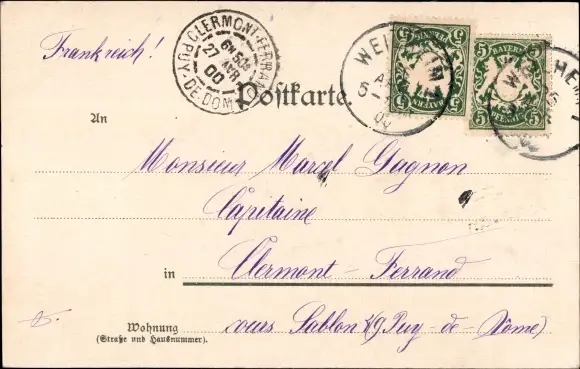 Frankreich!
CLERMONT-FERRAND
6H 50S
27
AVRI
00
PUY-DE-DOME
WEILHEIM
BAYERN
5 5
PFENNIG
BAYERN
5 5
PFENNIG
Postkarte.
An
Monsieur Marcel Gagnon
Capitaine
in Clermont-Ferrand
Wohnung
(Straße und Hausnummer).
cours Sablon 49 Puy-de-Dôme)